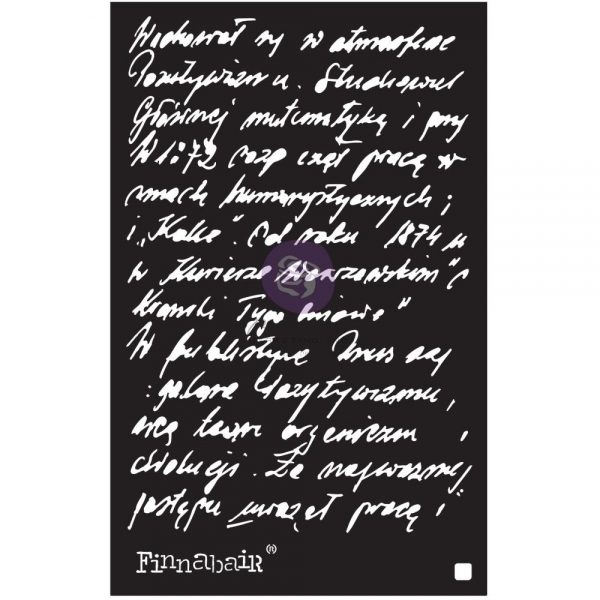 Wychował się w atmosferze
Pozytywizmu. Studiował
Głównej matematykę i przy
W 1872 rozp czął pracę w
zmach humorystycznych ;
i „Kolce". Od roku 1874 u
w Kurierze Warszawskim" c
Kroniki Tygo dniowe"
W publistyce Prus
: pozytywizmu,
organizm
ewolucji. Za najważniej
postępu uważał pracę i"
Finnabair (R)